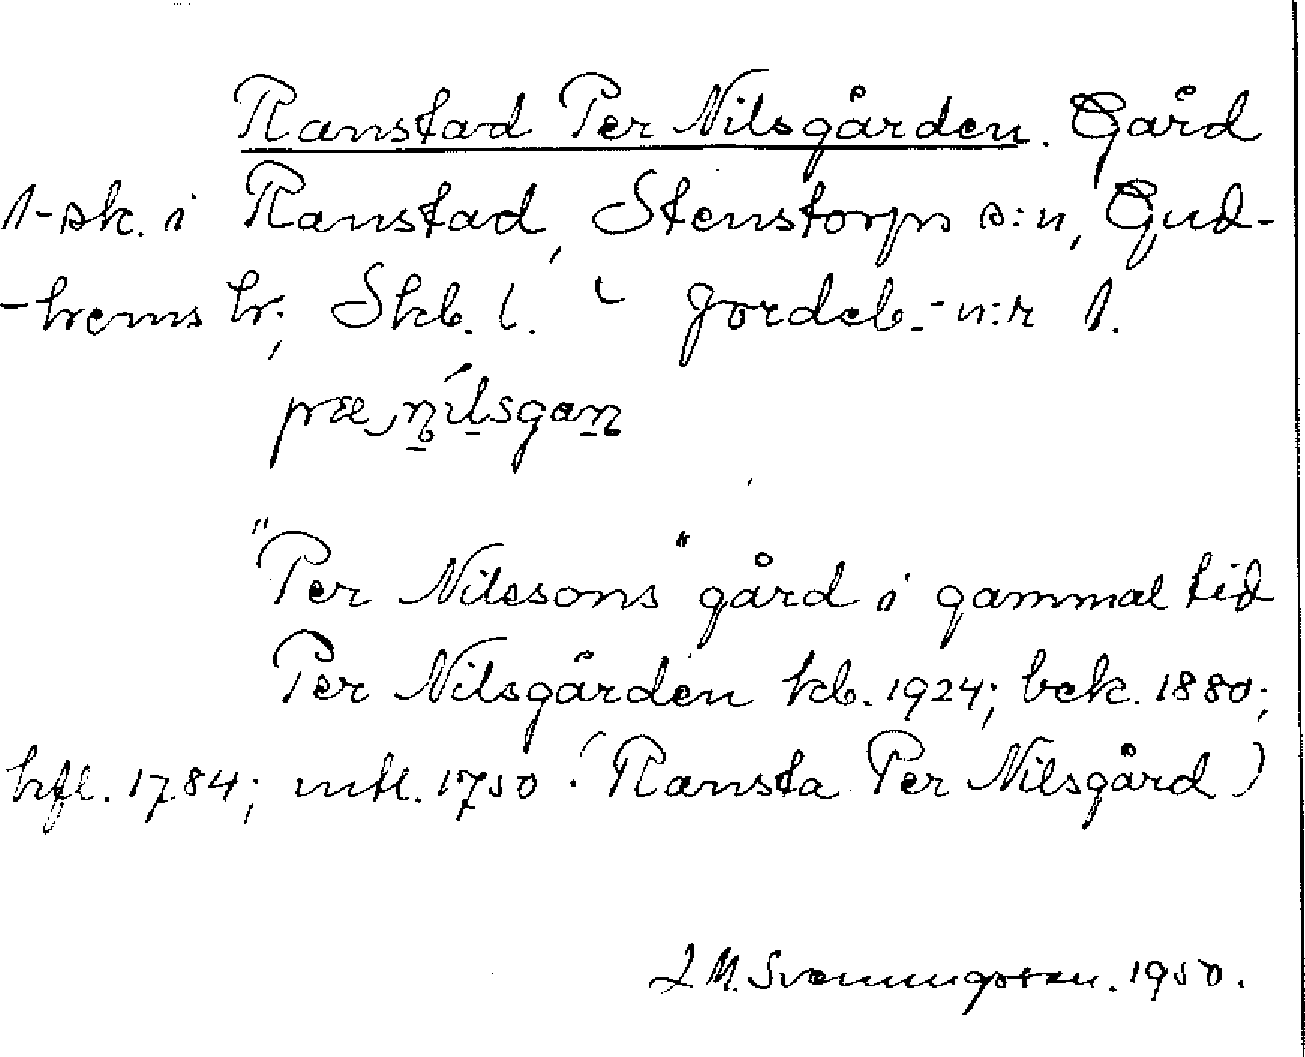 Ranstad Per Nilsgården. Gård
1-sk. i Ranstad, Stenstorps s:n, Gud-
-hems hr; Skb. l. Jordeb.-n:r 1.
"Per Nilssons" gård i gammal tid
Per Nilsgården kb. 1924; bek. 1880;
hfl. 1784; mtl. 1750 (Ransta Per Nilsgård)
L M. Svenungsson. 1950.